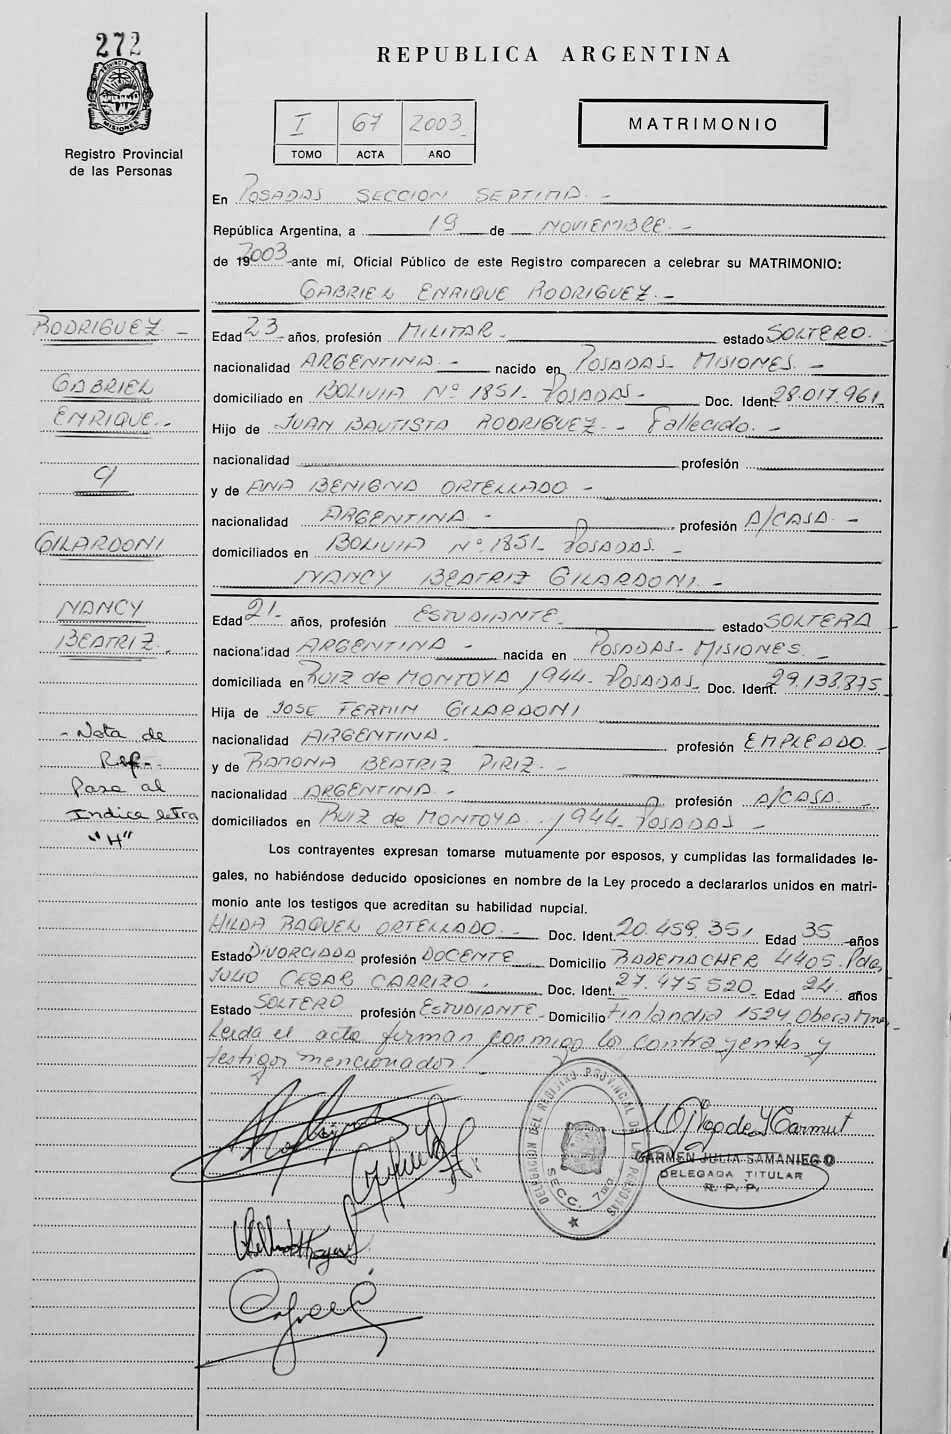 272
PROVINCIA DE MISIONES
Registro Provincial
de las Personas
REPUBLICA ARGENTINA
I 67 2003
TOMO ACTA AÑO
MATRIMONIO
En POSADAS SECCION SEPTIMA.-
República Argentina, a 19 de NOVIEMBRE.-
de 2003 ante mí, Oficial Público de este Registro comparecen a celebrar su MATRIMONIO:
GABRIEL ENRIQUE RODRIGUEZ.-
RODRIGUEZ.-
GABRIEL
ENRIQUE.-
GILARDONI
NANCY
BEATRIZ.-
- Nota de
Ref.-
Pasa al
Indice letra
"H"
Edad 23- años, profesión MILITAR.- estado SOLTERO.-
nacionalidad ARGENTINA.- nacido en POSADAS- MISIONES.-
domiciliado en BOLIVIA Nº 1851- POSADAS- Doc. Ident. 28.017.961-
Hijo de JUAN BAUTISTA RODRIGUEZ.- Fallecido.-
nacionalidad profesión
y de ANA BENIGNA ORTELLADO-
nacionalidad ARGENTINA.- profesión A/CASA.-
domiciliados en BOLIVIA Nº 1851- POSADAS.-
NANCY BEATRIZ GILARDONI.-
Edad 21- años, profesión ESTUDIANTE estado SOLTERA
nacionalidad ARGENTINA- nacida en POSADAS- MISIONES.-
domiciliada en RUIZ de MONTOYA 1944- POSADAS- Doc. Ident. 29.133.875-
Hija de JOSE FERMIN GILARDONI
nacionalidad ARGENTINA.- profesión EMPLEADO.-
y de RAMONA BEATRIZ PIRIZ.-
nacionalidad ARGENTINA.- profesión A/CASA.-
domiciliados en RUIZ de MONTOYA 1944- POSADAS-
Los contrayentes expresan tomarse mutuamente por esposos, y cumplidas las formalidades le-
gales, no habiéndose deducido oposiciones en nombre de la Ley procedo a declararlos unidos en matri-
monio ante los testigos que acreditan su habilidad nupcial.
HILDA RAQUEL ORTELLADO.- Doc. Ident. 20.459.351 Edad 35 años
Estado DIVORCIADA profesión DOCENTE Domicilio RADEMACHER 4405- Pdas
JULIO CESAR CARRIZO.- Doc. Ident. 27.475.520- Edad 24- años
Estado SOLTERO profesión ESTUDIANTE- Domicilio Finlandia 1524 Obera Mnes-
Leida el acta firman conmigo los contrayentes y
testigos mencionados!-
DELEGACION DEL REGISTRO PROVINCIAL DE LAS PERSONAS
SECC. 7ma
CARMEN JULIA SAMANIEGO
DELEGADA TITULAR
R. P. P.